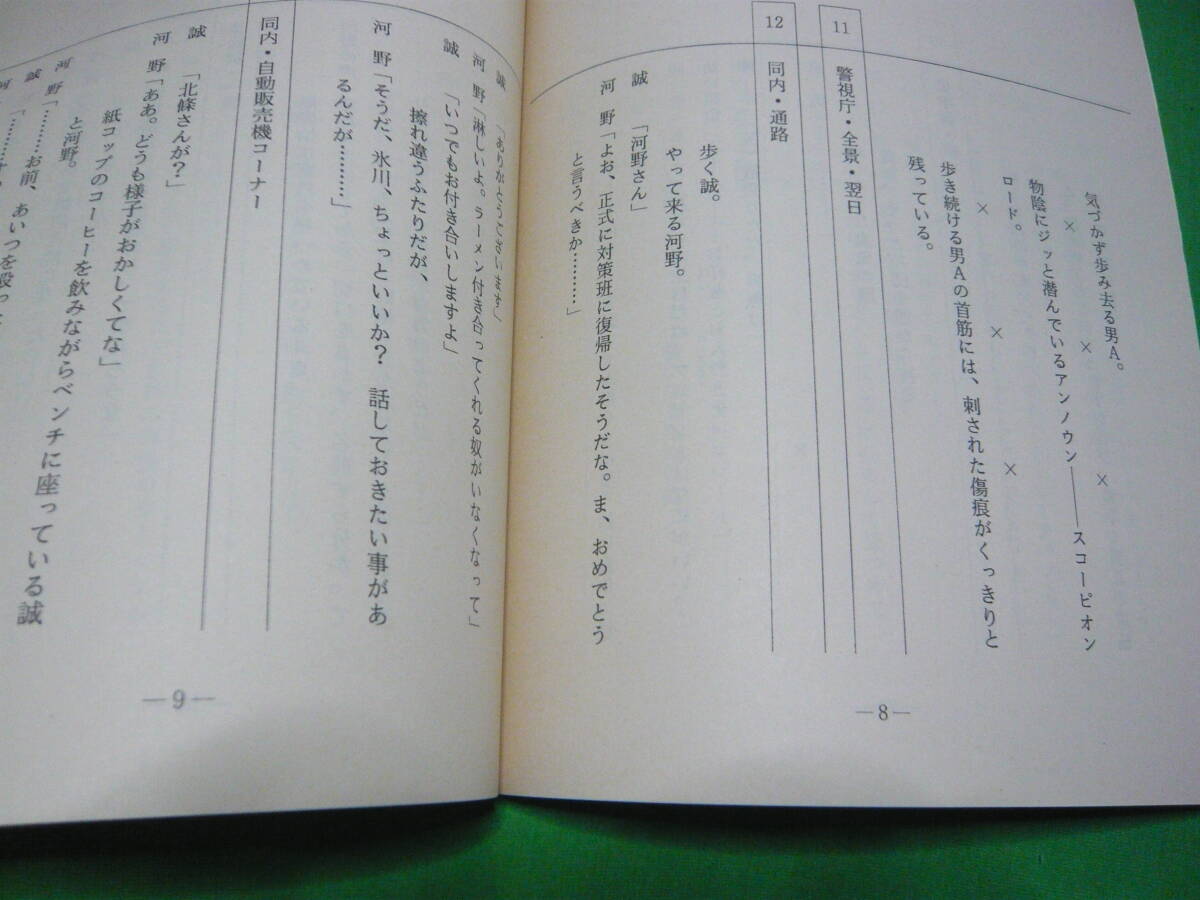 気づかず歩み去る男A。
×　×　×
物陰にジッと潜んでいるアンノウン――スコーピオン
ロード。
×　×　×
歩き続ける男Aの首筋には、刺された傷痕がくっきりと
残っている。
11 警視庁・全景・翌日
12 同内・通路
歩く誠。
やって来る河野。
誠「河野さん」
河野「よお、正式に対策班に復帰したそうだな。ま、おめでとう
と言うべきか………」
―8―
誠「ありがとうございます」
河野「淋しいよ。ラーメン付き合ってくれる奴がいなくなって」
誠「いつでもお付き合いしますよ」
擦れ違うふたりだが、
河野「そうだ、氷川、ちょっといいか？　話しておきたい事があ
るんだが………」
同内・自動販売機コーナー
誠「北條さんが？」
河野「ああ。どうも様子がおかしくてな」
紙コップのコーヒーを飲みながらベンチに座っている誠
と河野。
河野「………お前、あいつを殴った
誠「………
河
―9―